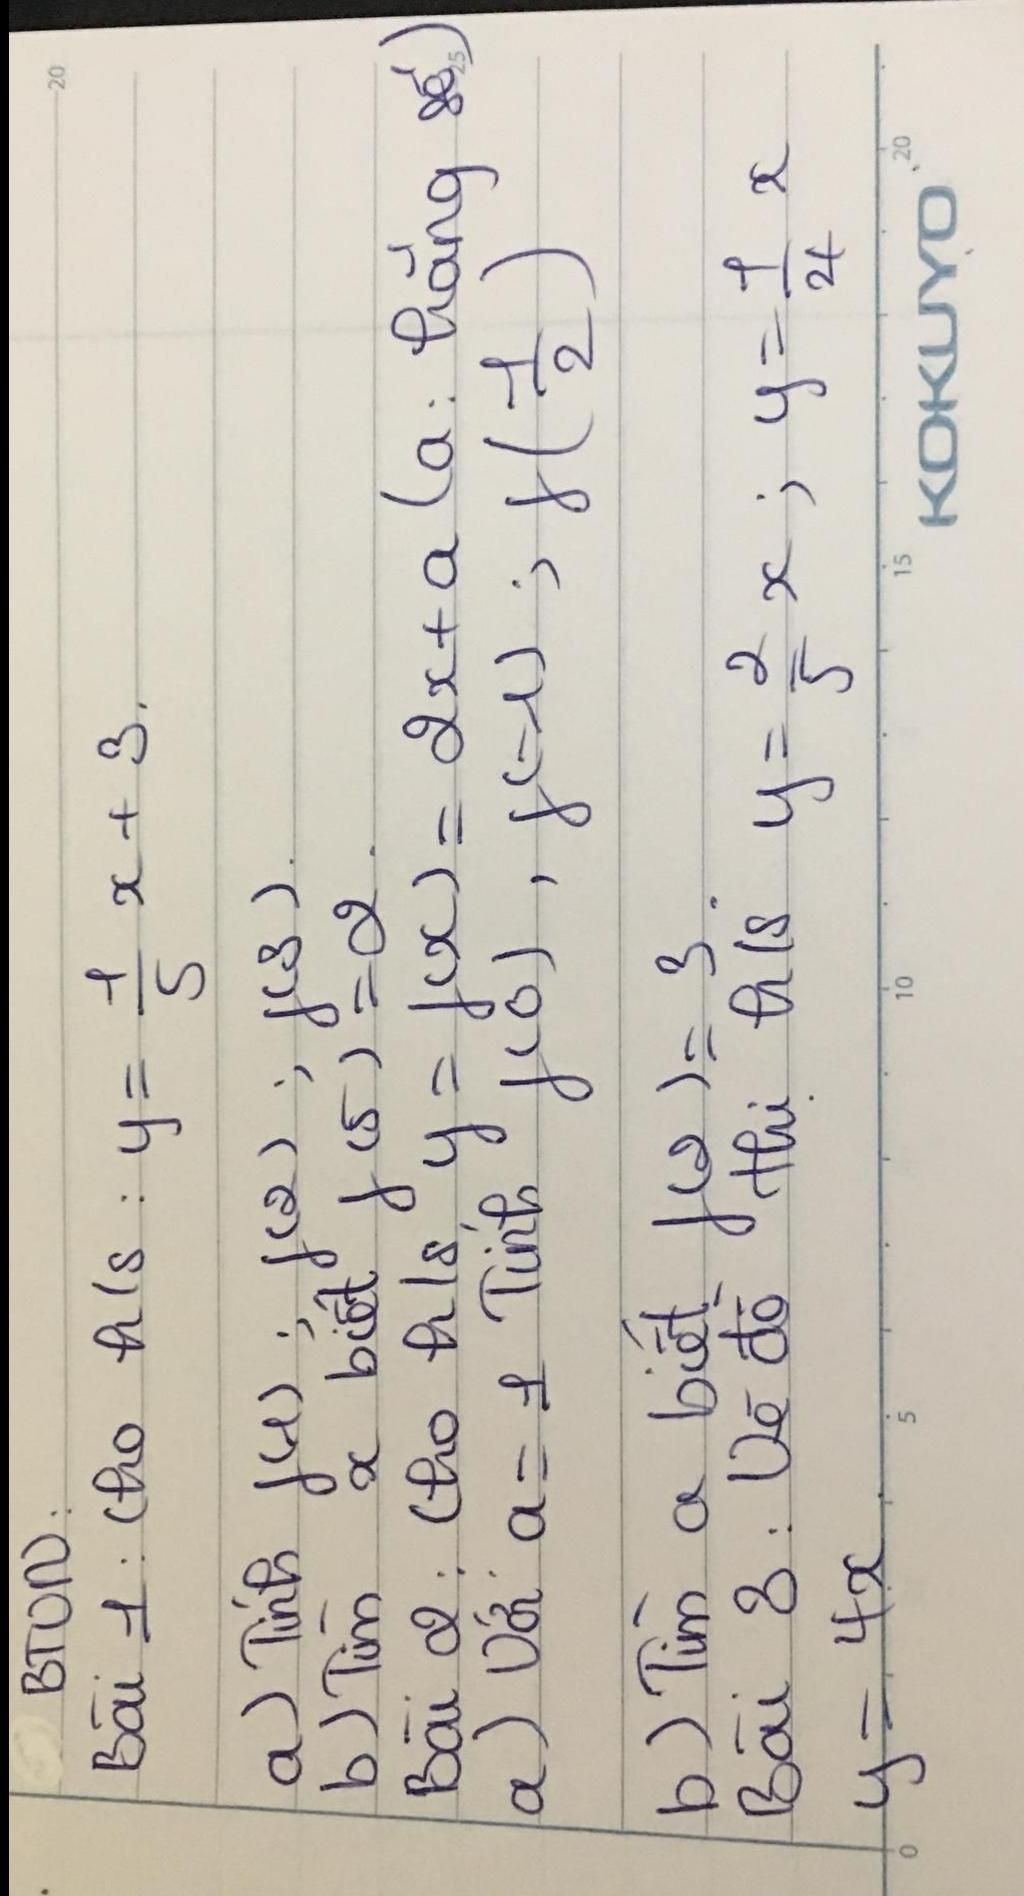 BTVN:
Bài 1: Cho h/s: y = 1/5 x + 3.
a) Tính f(1); f(2); f(3).
b) Tìm x biết f(5) = 2.
Bài 2: Cho h/s y = f(x) = 2x + a (a: hằng số)
a) Với a = 1 Tính f(0), f(-1); f(1/2)
b) Tìm a biết f(2) = 3.
Bài 3: Vẽ đồ thị h/s y = 2/5 x; y = 1/4 x
y = 4x
0 5 10 15 20
KOKUYO
20
25